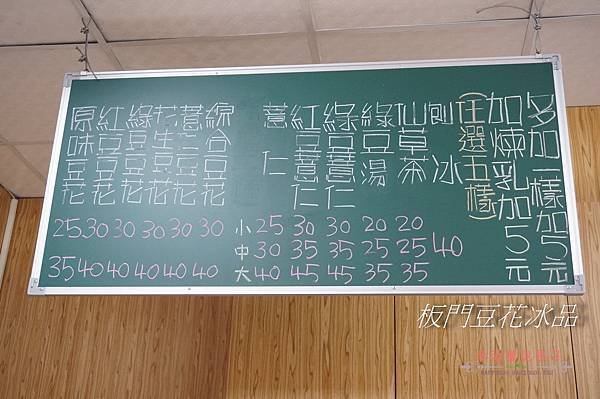 原味豆花
紅豆豆花
綠豆豆花
花生豆花
薏仁豆花
綜合豆花
薏仁
紅豆薏仁
綠豆薏仁
綠豆湯
仙草茶
刨冰
(任選五樣)
加煉乳加5元
多加一樣加5元
25 30 30 30 30 30 小 25 30 30 20 20
中 30 35 35 25 25 40
35 40 40 40 40 40 大 40 45 45 35 35
板門豆花冰品